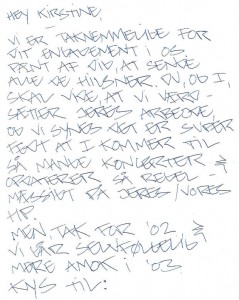 HEY KIRSTINE,
VI ER TAKNEMMELIGE FOR
DIT ENGAGEMENT I OS
PÆNT AF DIG, AT SENDE
ALLE DE HILSNER. DU, OG I,
SKAL VIDE, AT VI VÆRD-
SÆTTER JERES ARBEJDE
OG VI SYNES DET ER SUPER
FEDT AT I KOMMER TIL
SÅ MANGE KONCERTER &
OPDATERER SÅ REGEL-
MÆSSIGT PÅ JERES/VORES
HP.
MEN TAK FOR '02 &
VI GÅR SELVFØLGELIG
MERE AMOK I '03
KYS TIL: